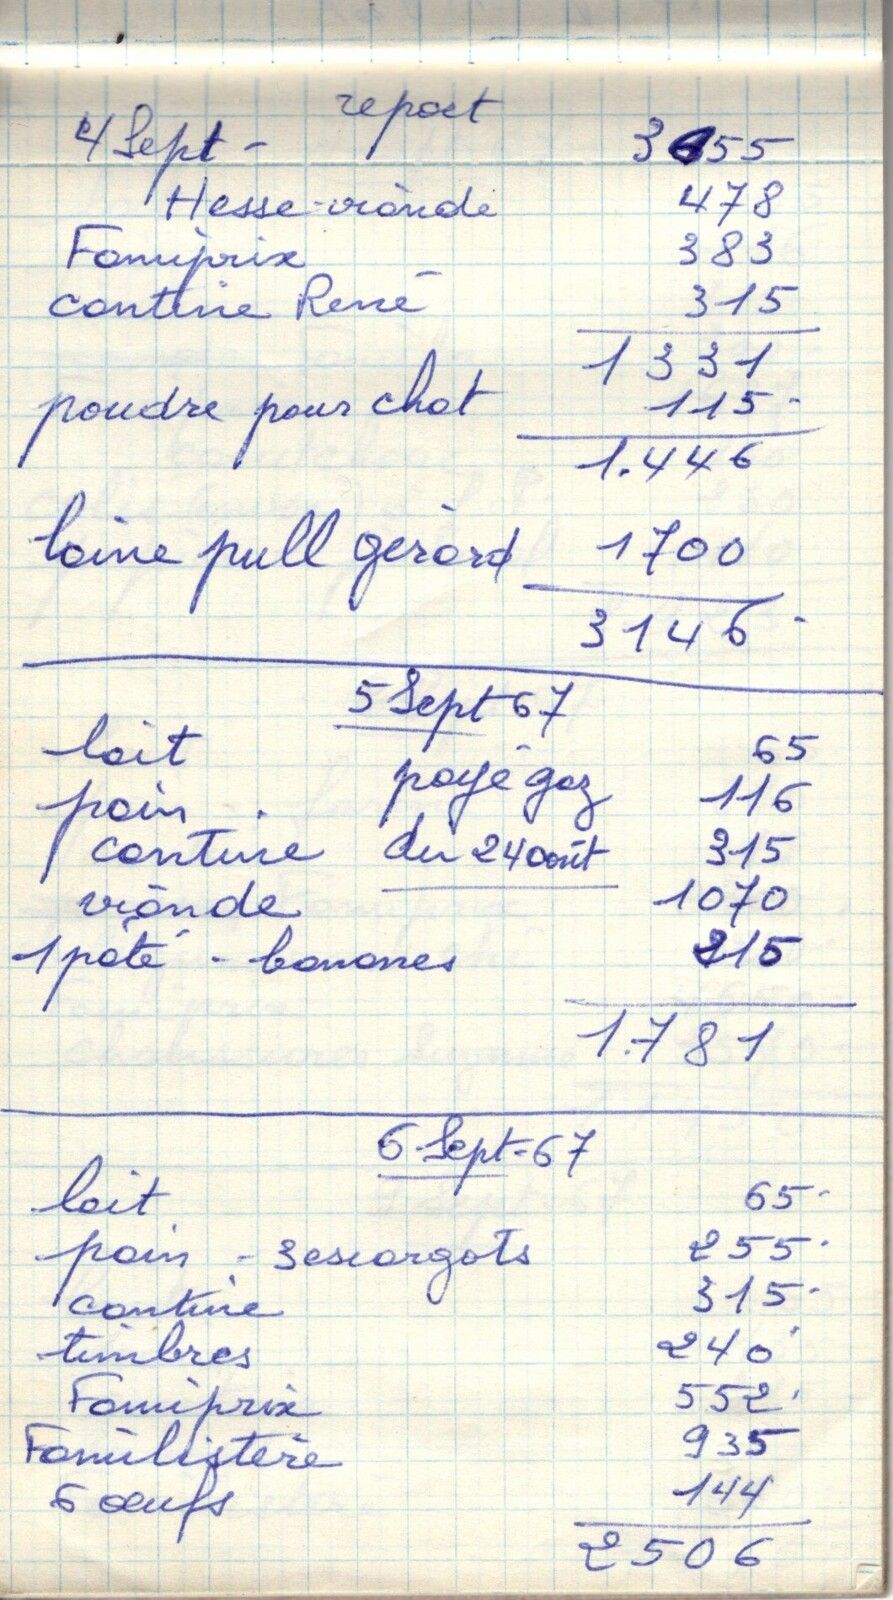 report
4 Sept - 3155
Hesse-viande 478
Famiprix 383
cantine René 315
1331
poudre pour chat 115.
1.446
laine pull gérard 1700
3146.
5 Sept 67
lait 65
pain payé gaz 116
cantine du 24 août 315
viande 1070
1 paté - bananes 215
1.781
6 Sept-67
lait 65.
pain - 3 escargots 255.
cantine 315.
timbres 240
Famiprix 552.
Familistère 935
6 œufs 144
2506